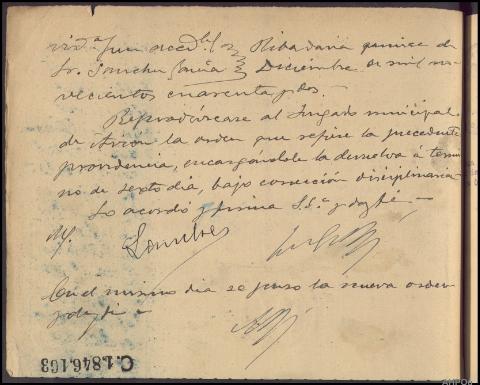 Ribadavia quince de
Sr. Sanchez García Diciembre de mil no-
vecientos cuarenta y dos.
Reprodúzcase al Juzgado municipal
de Avion la orden que refiere la precedente
providencia, encargándole la devuelva á térmi
no de sexto dia, bajo corrección disciplinaria
Lo acordó y firma S.Sª y doy fé. —
Sanchez
En el mismo dia se puso la nueva orden
y doy fé —
C.1.846,103